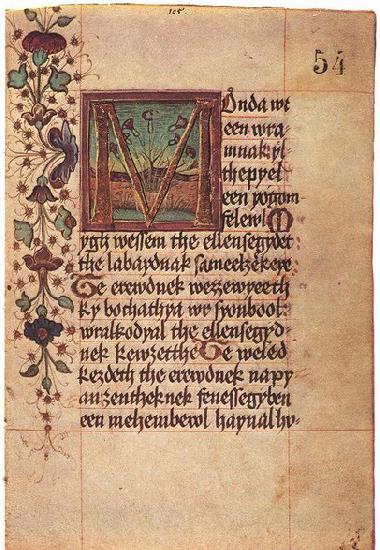 105.
54
MOnda wr
een wra-
mnak yl
thepyel
een yogom-
felewl M
ygh wessem the ellensegydet
the labaydnak
The erewdnek wezzewyeeth
ky bochathya wr syonbool
wralkodyal the ellensegyd
nek kewzetthe The weled
kezdeth the erewdnek napy
anzentheknek fenessegyben
een mehembewl haynal hy-